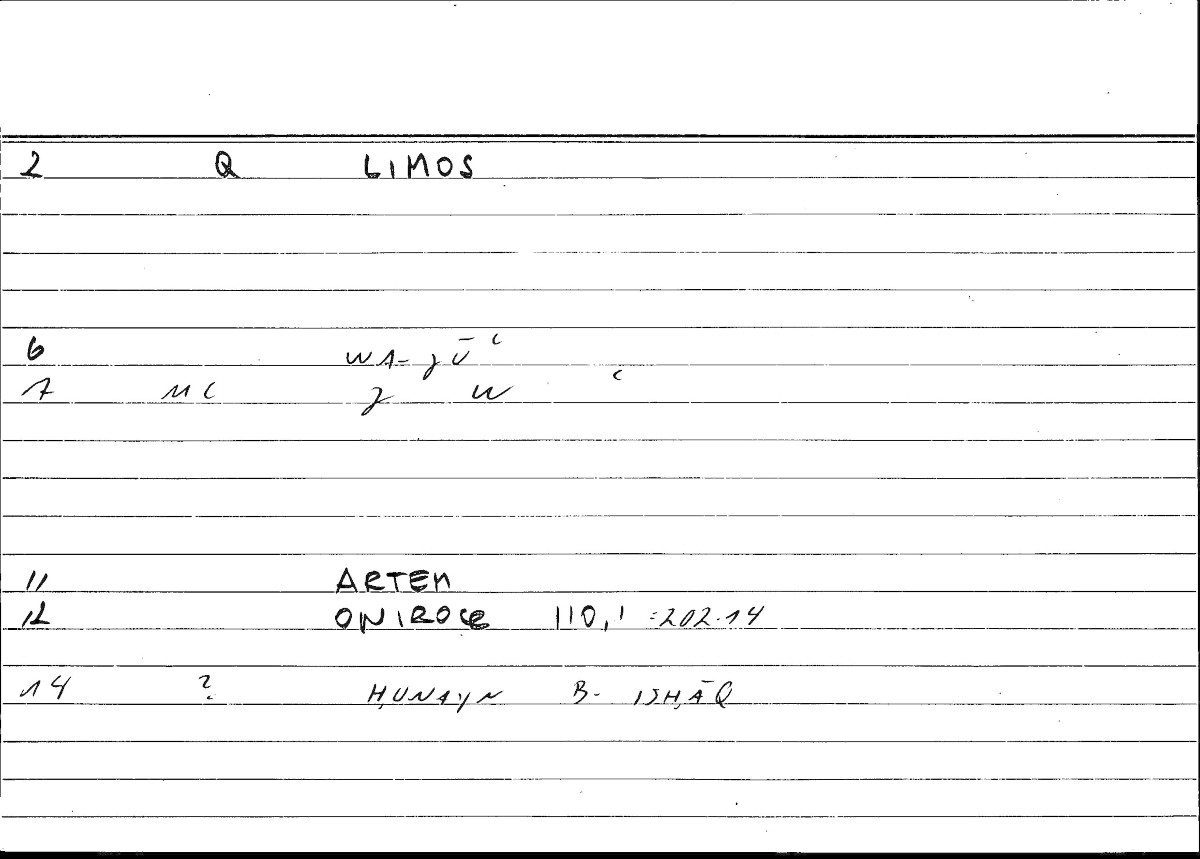 2 Q LIMOS
6 WA-ǧūʿ
7 MC ǧ W ʿ
11 ARTEM
12 ONIROCR 110,1 =202.14
14 ? ḤUNAYN B. ISḤĀQ